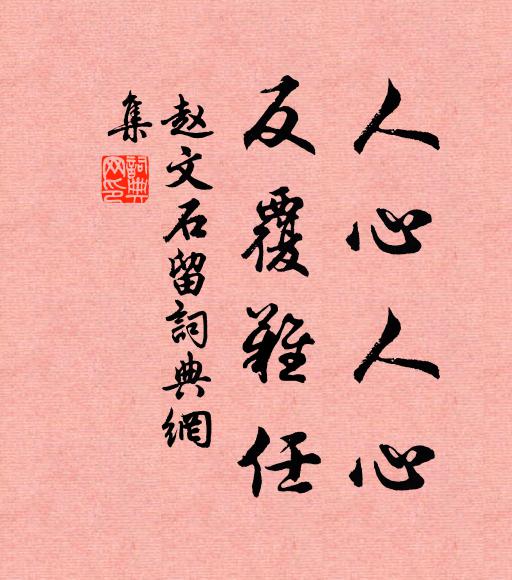 人心人心
反覆難任
赵文石留詞典網
集
詞典
网印